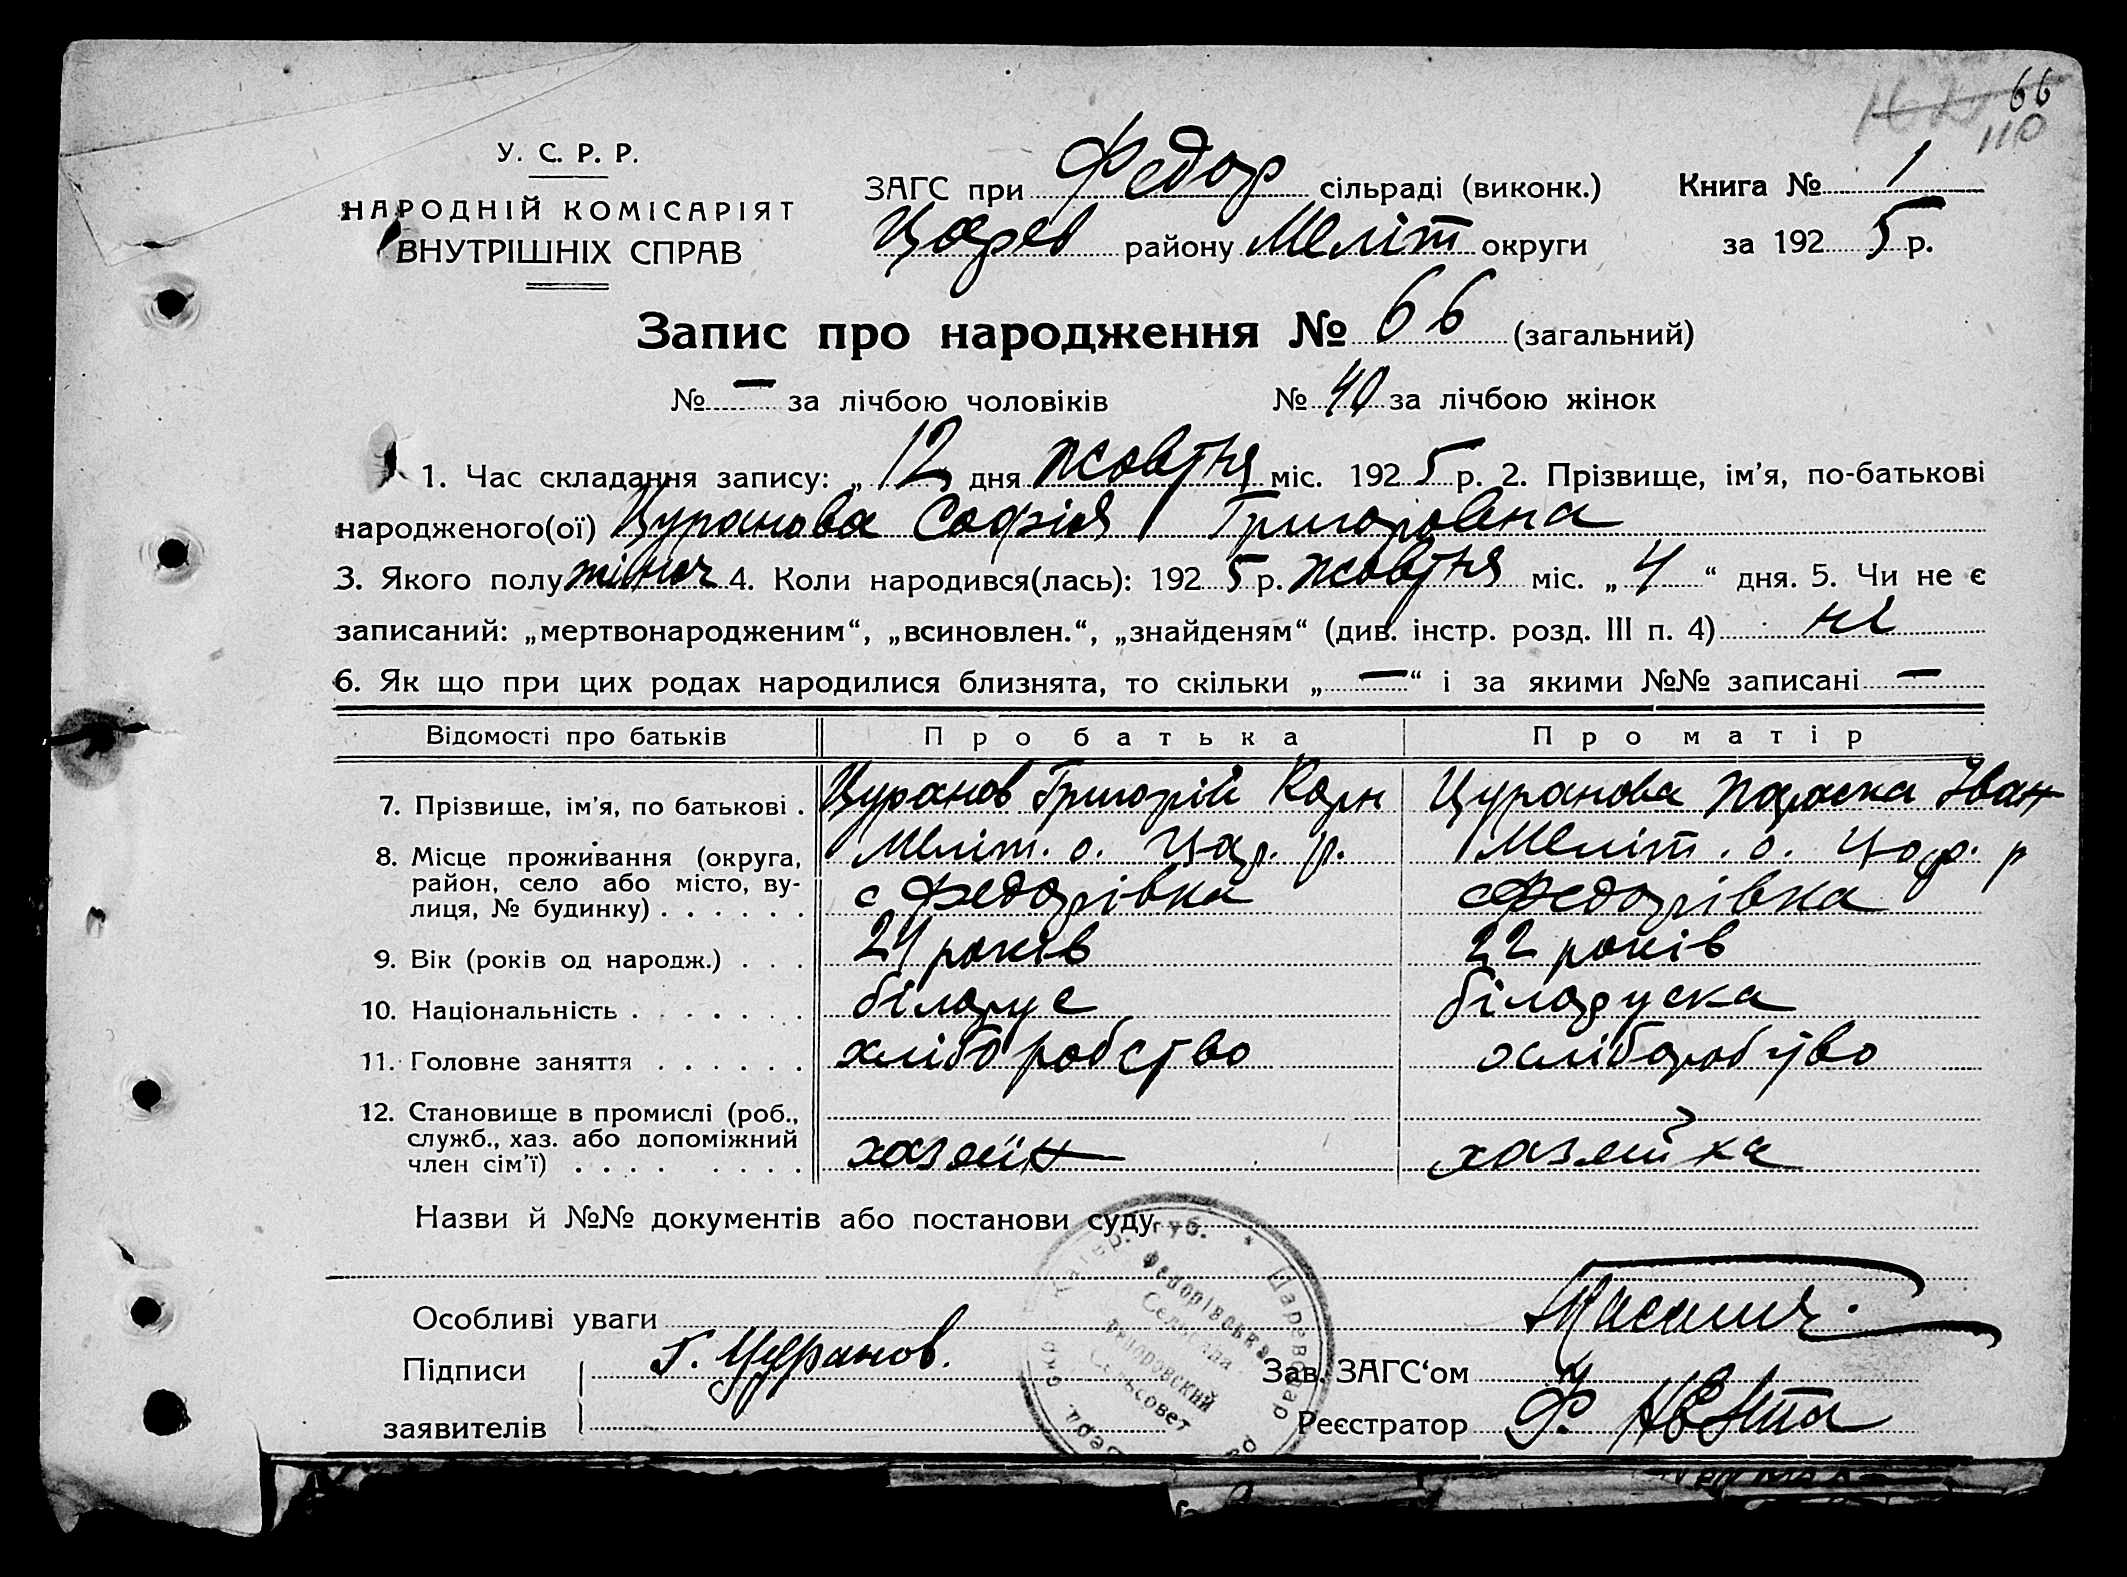 66
110
У. С. Р. Р.
НАРОДНІЙ КОМІСАРІЯТ
ВНУТРІШНІХ СПРАВ
ЗАГС при Федор сільраді (виконк.)
Царев району Меліт округи
Книга № 1
за 1925 р.
Запис про народження № 66 (загальний)
№ — за лічбою чоловіків № 40 за лічбою жінок
1. Час складання запису: „12 дня жовтня міс. 1925 р. 2. Прізвище, ім’я, по-батькові
народженого(ої) Цуранова Софія Григоровна
3. Якого полу жіноч 4. Коли народився(лась): 1925 р. жовтня міс. „4“ дня. 5. Чи не є
записаний: „мертвонародженим“, „всиновлен.“, „знайденям“ (див. інстр. розд. III п. 4) ні
6. Як що при цих родах народилися близнята, то скільки „—“ і за якими №№ записані —
Відомості про батьків Про батька Про матір
7. Прізвище, ім’я, по батькові . Цуранов Григорій Корн Цуранова Параска Іван
8. Місце проживання (округа, Меліт. о. Цар. р. Меліт. о. Цар. р
район, село або місто, ву- с Федорівка с Федорівка
лиця, № будинку) . . . . . .
9. Вік (років од народж.) . . . 24 років 22 років
10. Національність . . . . . . . білорус білоруска
11. Головне заняття . . . . . . хліборобство хліборобство
12. Становище в промислі (роб.,
служб., хаз. або допоміжний хазяїн хазяйка
член сім’ї) . . . . . . . .
Назви й №№ документів або постанови суду
Особливі уваги
Підписи Г. Цуранов. Зав. ЗАГС‘ом
заявителів Реєстратор Ф.
Катер. губ. * Цареводар
Федорівська
Сельрада
Федоровский
Сельсовет